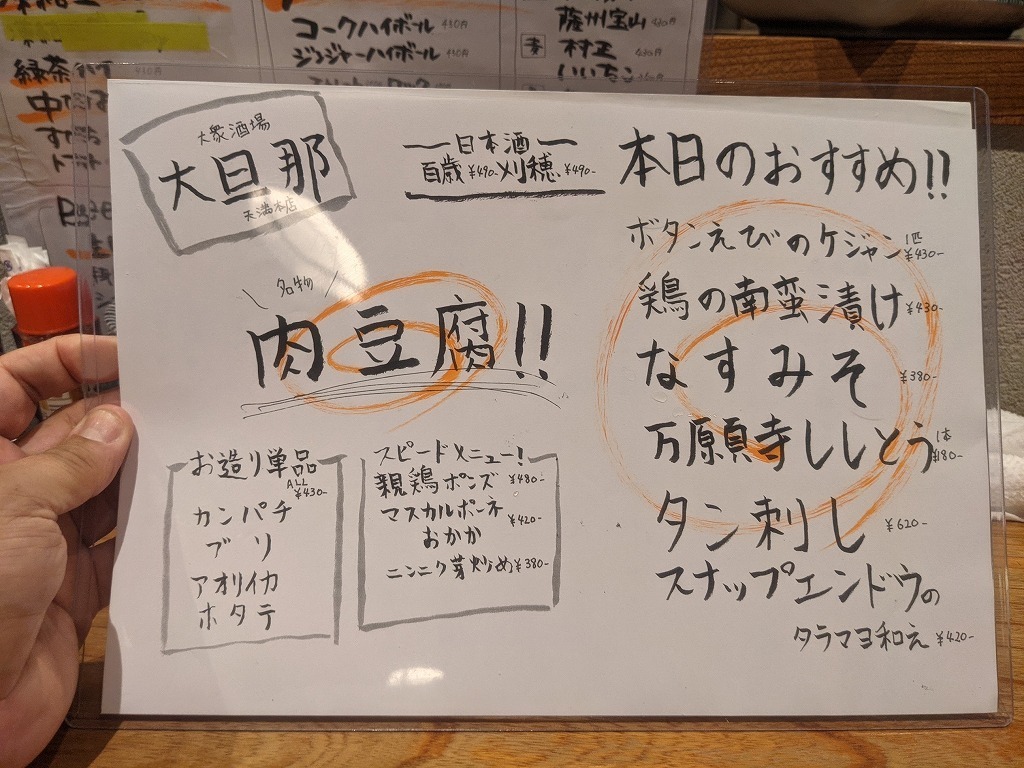 コークハイボール 430円
ジンジャーハイボール 430円
薩州宝山
麦
村正
いいちこ
緑茶
大衆酒場
大旦那
天満本店
日本酒
百歳 ¥490- 刈穂 ¥490-
名物
肉豆腐!!
お造り単品
ALL
¥430-
カンパチ
ブリ
アオリイカ
ホタテ
スピードメニュー!
親鶏ポンズ ¥480-
マスカルポーネ
おかか ¥420-
ニンニク芽炒め ¥380-
本日のおすすめ!!
ボタンえびのケジャン 1匹 ¥430-
鶏の南蛮漬け ¥430-
なすみそ ¥380-
万願寺ししとう 1本 ¥180-
タン刺し ¥620-
スナップエンドウの
タラマヨ和え ¥420-